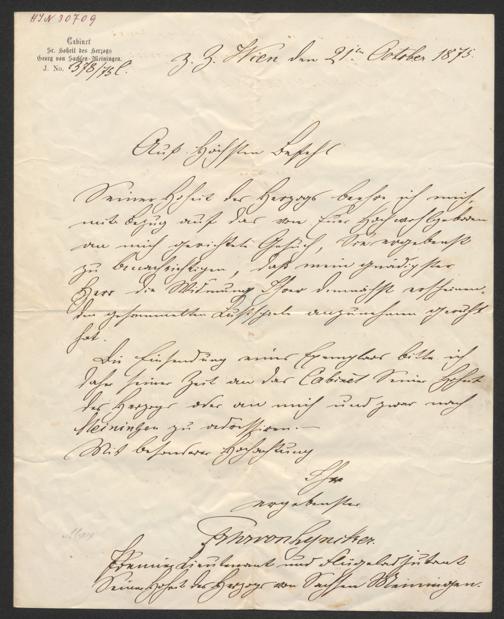 HIN 30709
Cabinet
Sr. Hoheit des Herzogs
Georg von Sachsen-Meiningen.
J. No. 378/75 C.
z. Z. Wien den 21ten October 1875.
Auf Höchsten Befehl
Seiner Hoheit des Herzogs beehre ich mich,
mit Bezug auf das von Euer Hochwohlgeboren
an mich gerichtete Gesuch, Sie ergebenst
zu benachrichtigen, daß mein gnädigster
Herr die Widmung Ihrer demnächst erscheinen-
den gesammelten Lustspiele anzunehmen geruht
hat.
Die Einsendung eines Exemplars bitte ich
daher seiner Zeit an das Cabinet Seiner Hoheit
des Herzogs oder an mich und zwar nach
Meiningen zu adressiren.—
Mit besonderer Hochachtung
Ihr
ergebenster
Frhr von Lyncker
Premier Lieutenant und Flügeladjutant
Seiner Hoheit des Herzogs von Sachsen Meiningen.